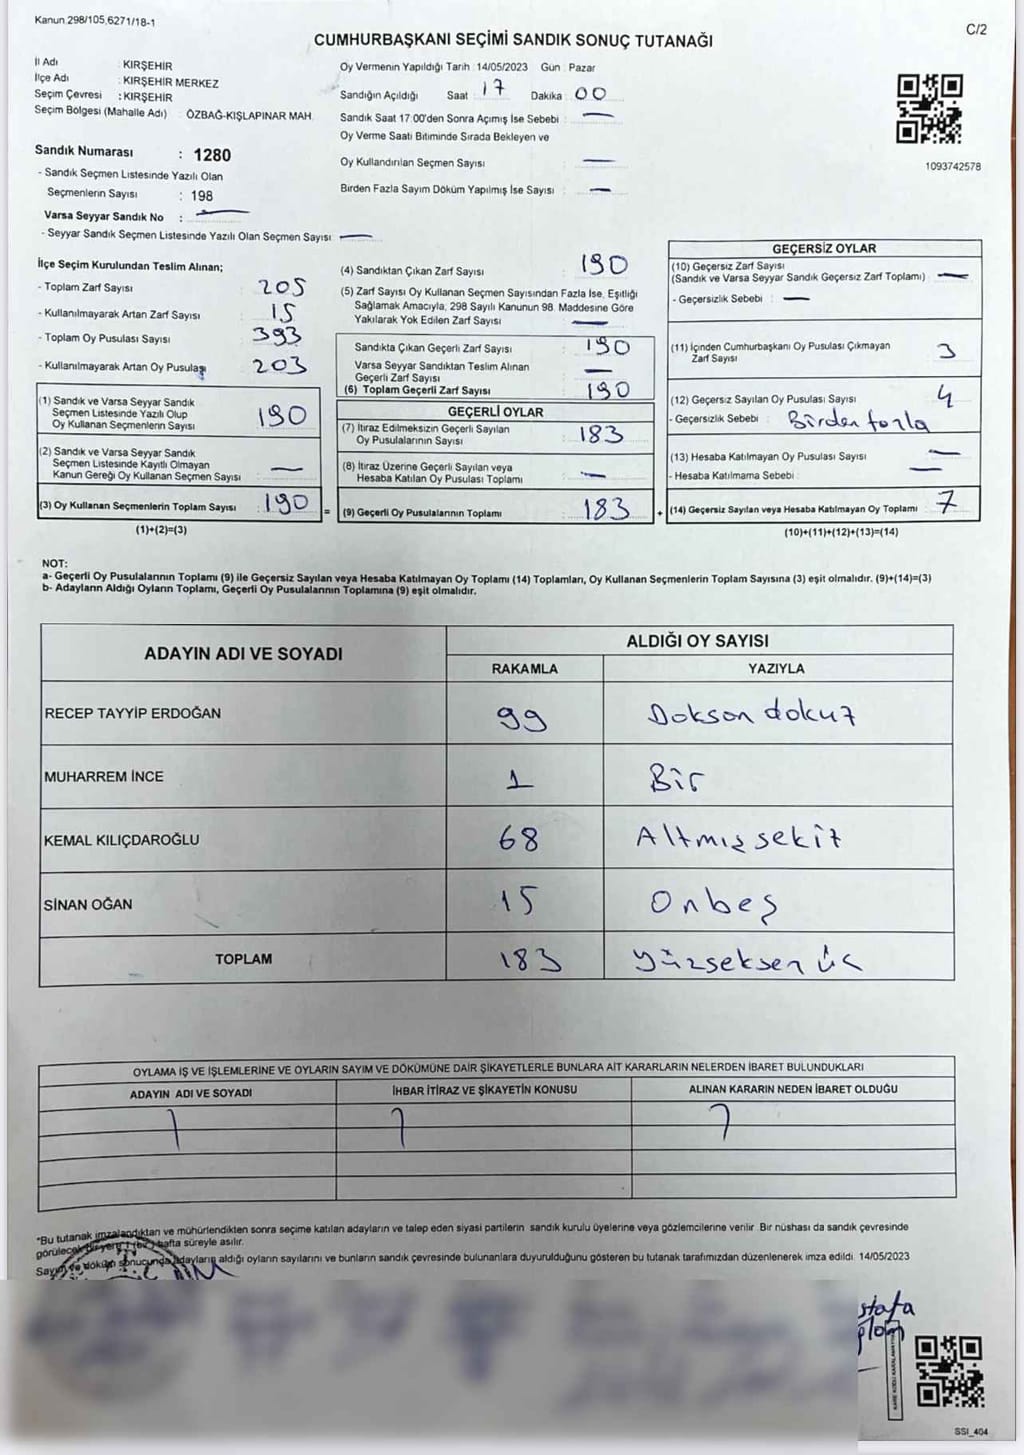 Kanun 298/105,6271/18-1
C/2
CUMHURBAŞKANI SEÇİMİ SANDIK SONUÇ TUTANAĞI
İl Adı : KIRŞEHİR
İlçe Adı : KIRŞEHİR MERKEZ
Seçim Çevresi : KIRŞEHİR
Seçim Bölgesi (Mahalle Adı) : ÖZBAĞ-KIŞLAPINAR MAH.
Sandık Numarası : 1280
- Sandık Seçmen Listesinde Yazılı Olan
Seçmenlerin Sayısı : 198
Varsa Seyyar Sandık No : —
- Seyyar Sandık Seçmen Listesinde Yazılı Olan Seçmen Sayısı : —
Oy Vermenin Yapıldığı Tarih : 14/05/2023 Gün : Pazar
Sandığın Açıldığı Saat 17 Dakika : 00
Sandık Saat 17.00'den Sonra Açımış İse Sebebi : —
Oy Verme Saati Bitiminde Sırada Bekleyen ve
Oy Kullandırılan Seçmen Sayısı : —
Birden Fazla Sayım Döküm Yapılmış İse Sayısı : —
1093742578
İlçe Seçim Kurulundan Teslim Alınan;
- Toplam Zarf Sayısı : 205
- Kullanılmayarak Artan Zarf Sayısı : 15
- Toplam Oy Pusulası Sayısı : 393
- Kullanılmayarak Artan Oy Pusulası : 203
(1) Sandık ve Varsa Seyyar Sandık
Seçmen Listesinde Yazılı Olup
Oy Kullanan Seçmenlerin Sayısı : 190
(2) Sandık ve Varsa Seyyar Sandık
Seçmen Listesinde Kayıtlı Olmayan
Kanun Gereği Oy Kullanan Seçmen Sayısı : —
(3) Oy Kullanan Seçmenlerin Toplam Sayısı : 190
(1)+(2)=(3)
(4) Sandıktan Çıkan Zarf Sayısı : 190
(5) Zarf Sayısı Oy Kullanan Seçmen Sayısından Fazla İse, Eşitliği
Sağlamak Amacıyla, 298 Sayılı Kanunun 98. Maddesine Göre
Yakılarak Yok Edilen Zarf Sayısı : —
Sandıkta Çıkan Geçerli Zarf Sayısı : 190
Varsa Seyyar Sandıktan Teslim Alınan
Geçerli Zarf Sayısı : —
(6) Toplam Geçerli Zarf Sayısı : 190
GEÇERLİ OYLAR
(7) İtiraz Edilmeksizin Geçerli Sayılan
Oy Pusulalarının Sayısı : 183
(8) İtiraz Üzerine Geçerli Sayılan veya
Hesaba Katılan Oy Pusulası Toplamı : —
= (9) Geçerli Oy Pusulalarının Toplamı : 183
GEÇERSİZ OYLAR
(10) Geçersiz Zarf Sayısı
(Sandık ve Varsa Seyyar Sandık Geçersiz Zarf Toplamı) : —
- Geçersizlik Sebebi : —
(11) İçinden Cumhurbaşkanı Oy Pusulası Çıkmayan
Zarf Sayısı : 3
(12) Geçersiz Sayılan Oy Pusulası Sayısı : 4
- Geçersizlik Sebebi : Birden fazla
(13) Hesaba Katılmayan Oy Pusulası Sayısı : —
- Hesaba Katılmama Sebebi : —
+ (14) Geçersiz Sayılan veya Hesaba Katılmayan Oy Toplamı : 7
(10)+(11)+(12)+(13)=(14)
NOT:
a- Geçerli Oy Pusulalarının Toplamı (9) ile Geçersiz Sayılan veya Hesaba Katılmayan Oy Toplamı (14) Toplamları, Oy Kullanan Seçmenlerin Toplam Sayısına (3) eşit olmalıdır. (9)+(14)=(3)
b- Adayların Aldığı Oyların Toplamı, Geçerli Oy Pusulalarının Toplamına (9) eşit olmalıdır.
ADAYIN ADI VE SOYADI
ALDIĞI OY SAYISI
RAKAMLA YAZIYLA
RECEP TAYYİP ERDOĞAN 99 Dokson dokuz
MUHARREM İNCE 1 Bir
KEMAL KILIÇDAROĞLU 68 Altmış sekiz
SİNAN OĞAN 15 Onbeş
TOPLAM 183 Yüzseksen üç
OYLAMA İŞ VE İŞLEMLERİNE VE OYLARIN SAYIM VE DÖKÜMÜNE DAİR ŞİKAYETLERLE BUNLARA AİT KARARLARIN NELERDEN İBARET BULUNDUKLARI
ADAYIN ADI VE SOYADI İHBAR İTİRAZ VE ŞİKAYETİN KONUSU ALINAN KARARIN NEDEN İBARET OLDUĞU
*Bu tutanak imzalandıktan ve mühürlendikten sonra seçime katılan adayların ve talep eden siyasi partilerin sandık kurulu üyelerine veya gözlemcilerine verilir. Bir nüshası da sandık çevresinde
görülecek bir yere 1 (bir) hafta süreyle asılır.
Sayım ve döküm sonucunda adayların aldığı oyların sayılarını ve bunların sandık çevresinde bulunanlara duyurulduğunu gösteren bu tutanak tarafımızdan düzenlenerek imza edildi. 14/05/2023
SSI_404